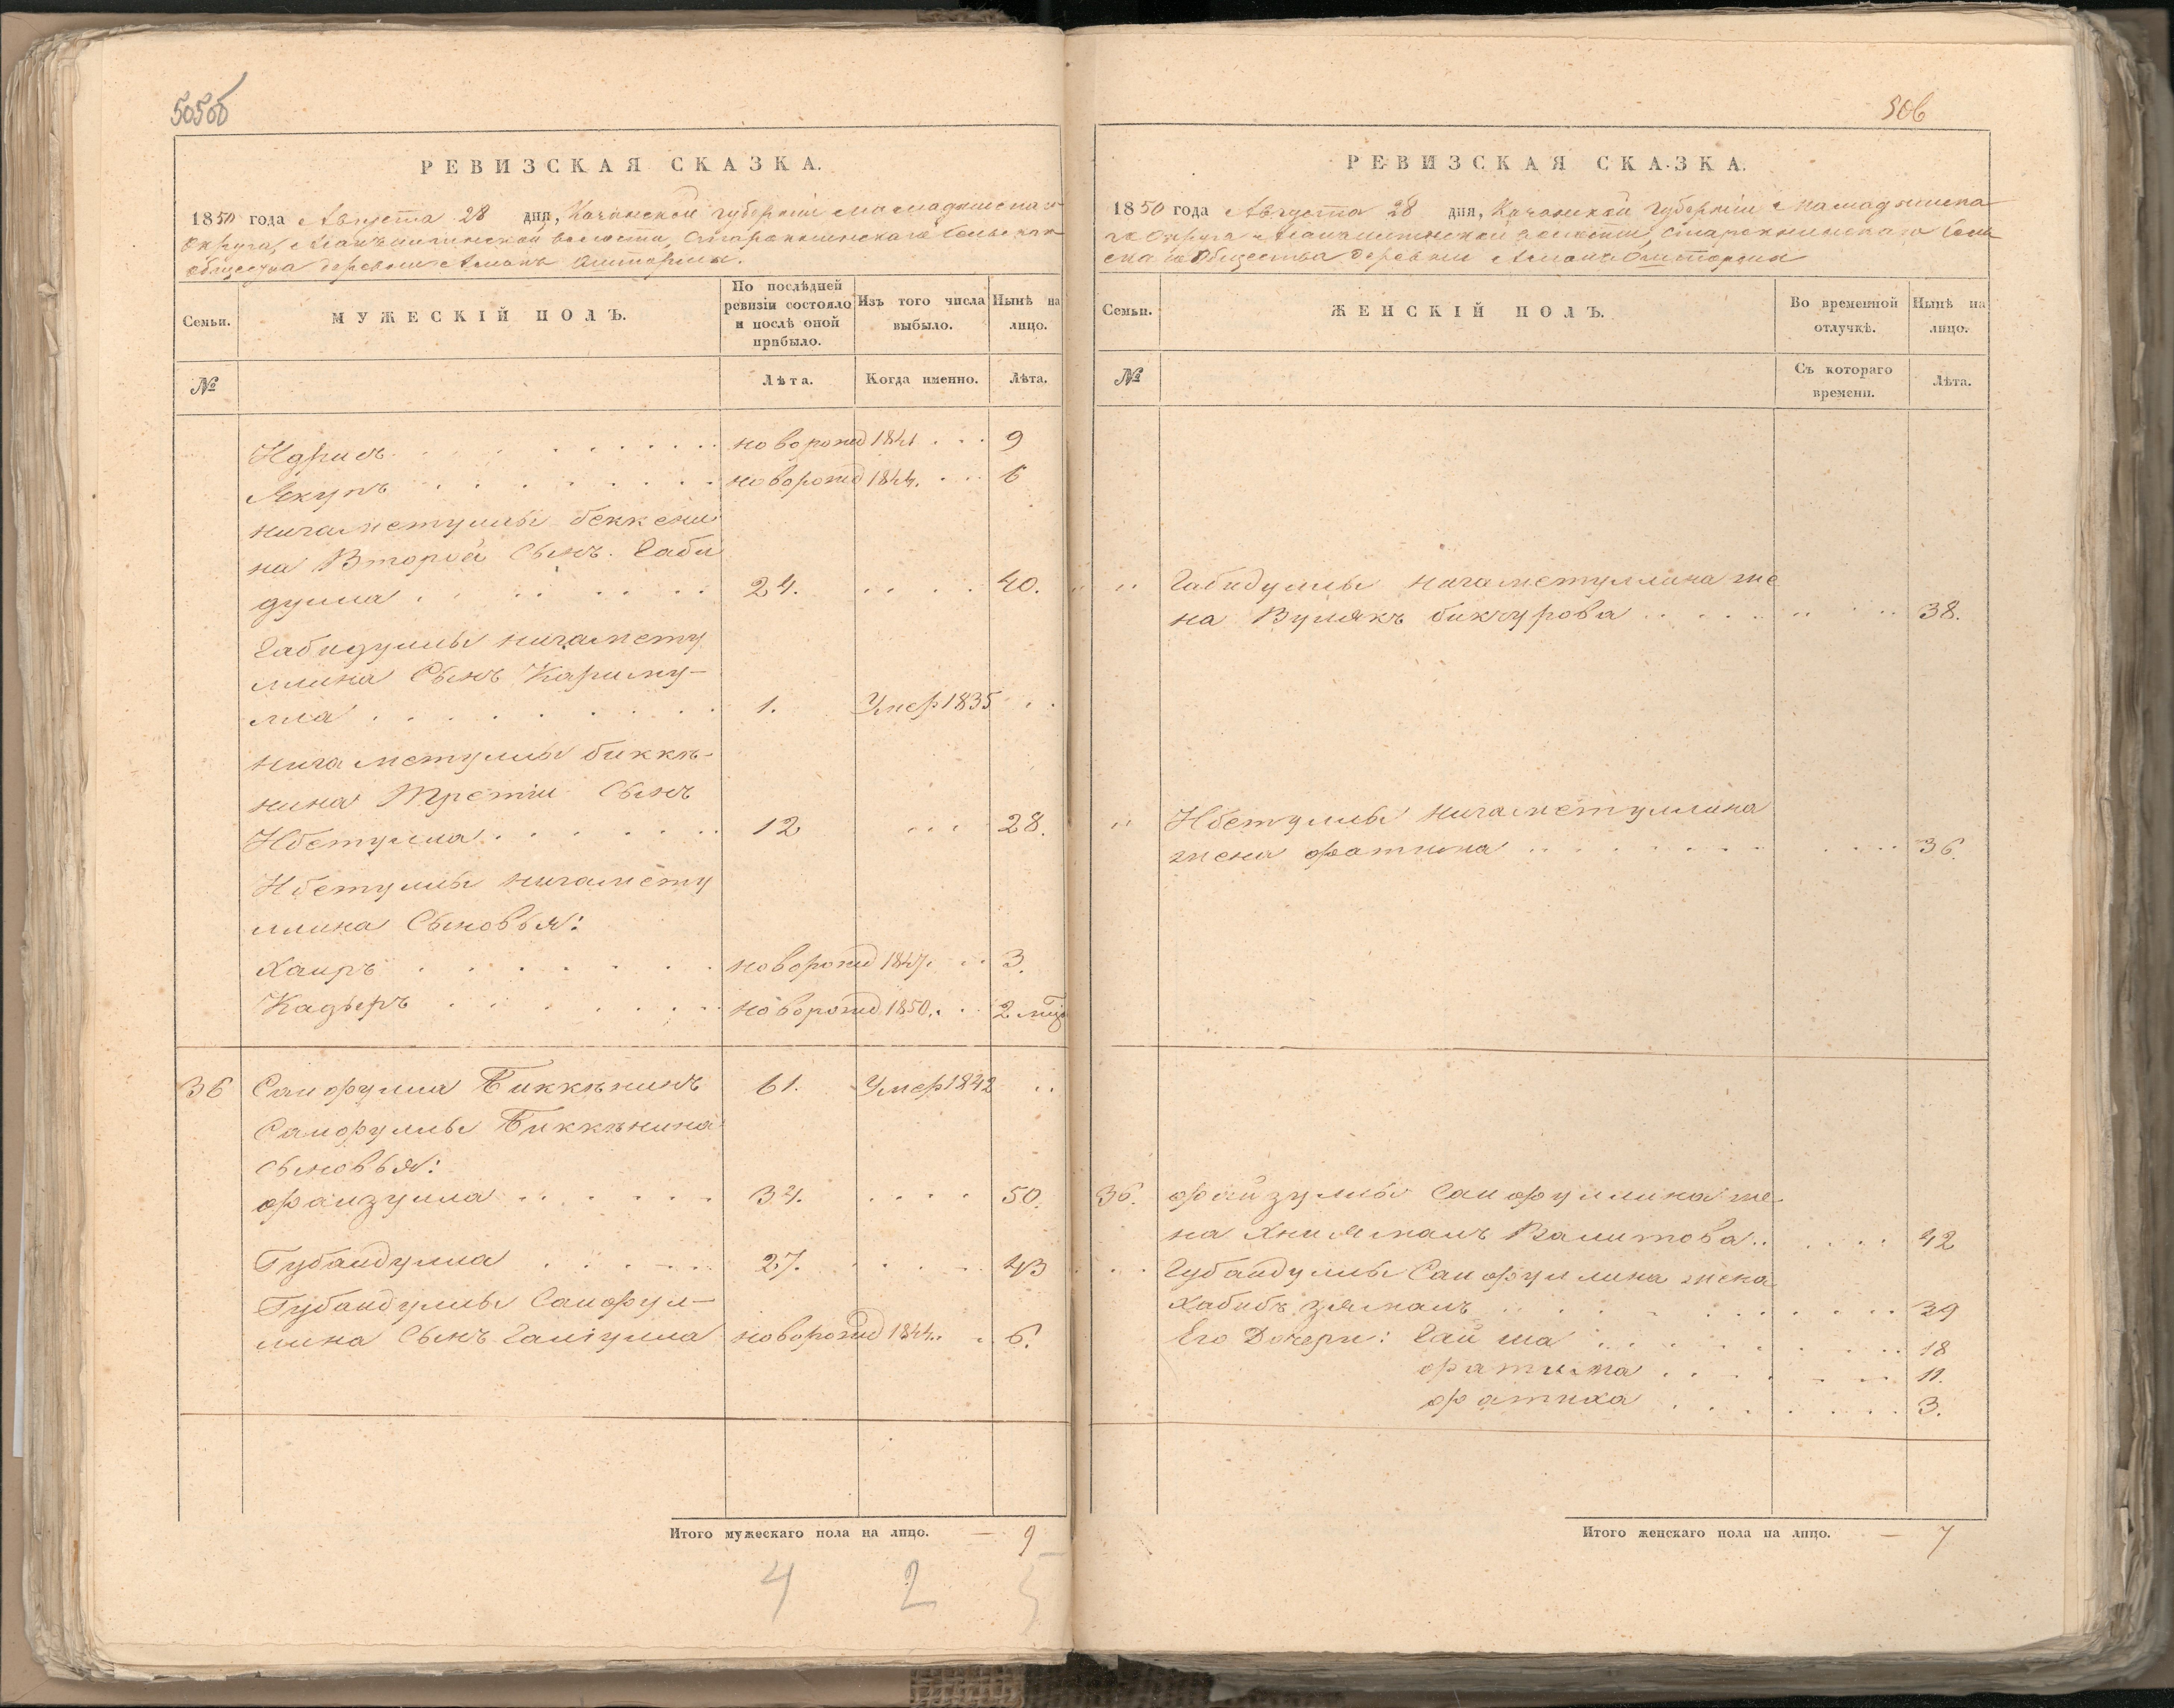 505об
РЕВИЗСКАЯ СКАЗКА.
1850 года Августа 28 дня, Казанской губернiи Мамадышскаго
Округа, волости, Старокшинскаго Сельскаго
общества деревни Аланъ
Семьи.
МУЖЕСКIЙ ПОЛЪ.
По послѣдней ревизiи состояло и послѣ оной прибыло.
Изъ того числа выбыло.
Нынѣ на лицо.
№
Лѣта.
Когда именно.
Лѣта.
Идрисъ новорожд 1841 9
Якупъ новорожд 1844. 6
нигаметуллы беккени
на Второй Сынъ. Габи
дулла 24. 40.
Габидуллы нигамету
ллина Сынъ Кариму-
лла 1. Умер 1835
нигаметуллы биккѣ-
нина Третiи Сынъ
Ибетулла 12 28.
Ибетуллы нигамету
ллина Сыновья:
Хаиръ новорожд 1847. 3.
Кадыръ новорожд 1850. 2 мца
36 Саифулла Биккѣнинъ 61. Умер 1842
Саифуллы Биккѣнина
сыновья:
фаизулла 34. 50.
Губаидулла 27. 43
Губаидуллы Саифул-
лина Сынъ Галiулла новорожд 1844. 6.
Итого мужескаго пола на лицо. — 9
4 2 5
506
РЕВИЗСКАЯ СКАЗКА.
1850 года Августа 28 дня, Казанской Губернiи Мамадышска
го Округа волости, Старокшинскаго Сель
скаго Общества деревни Аланъ
Семьи.
ЖЕНСКIЙ ПОЛЪ.
Во временной отлучкѣ.
Нынѣ на лицо.
№
Съ котораго времени.
Лѣта.
Габидуллы нигаметуллина же
на Вулякъ бикчурова 38.
Ибетуллы нигаметуллина
жена фатима 36.
36. файзуллы Саифуллина же
на Валитова 42
Губаидуллы Саифуллина жена
Хабибъ зямалъ 39
Его Дочери: Гайша 18
фатима 11.
фатиха 3.
Итого женскаго пола на лицо. — 7